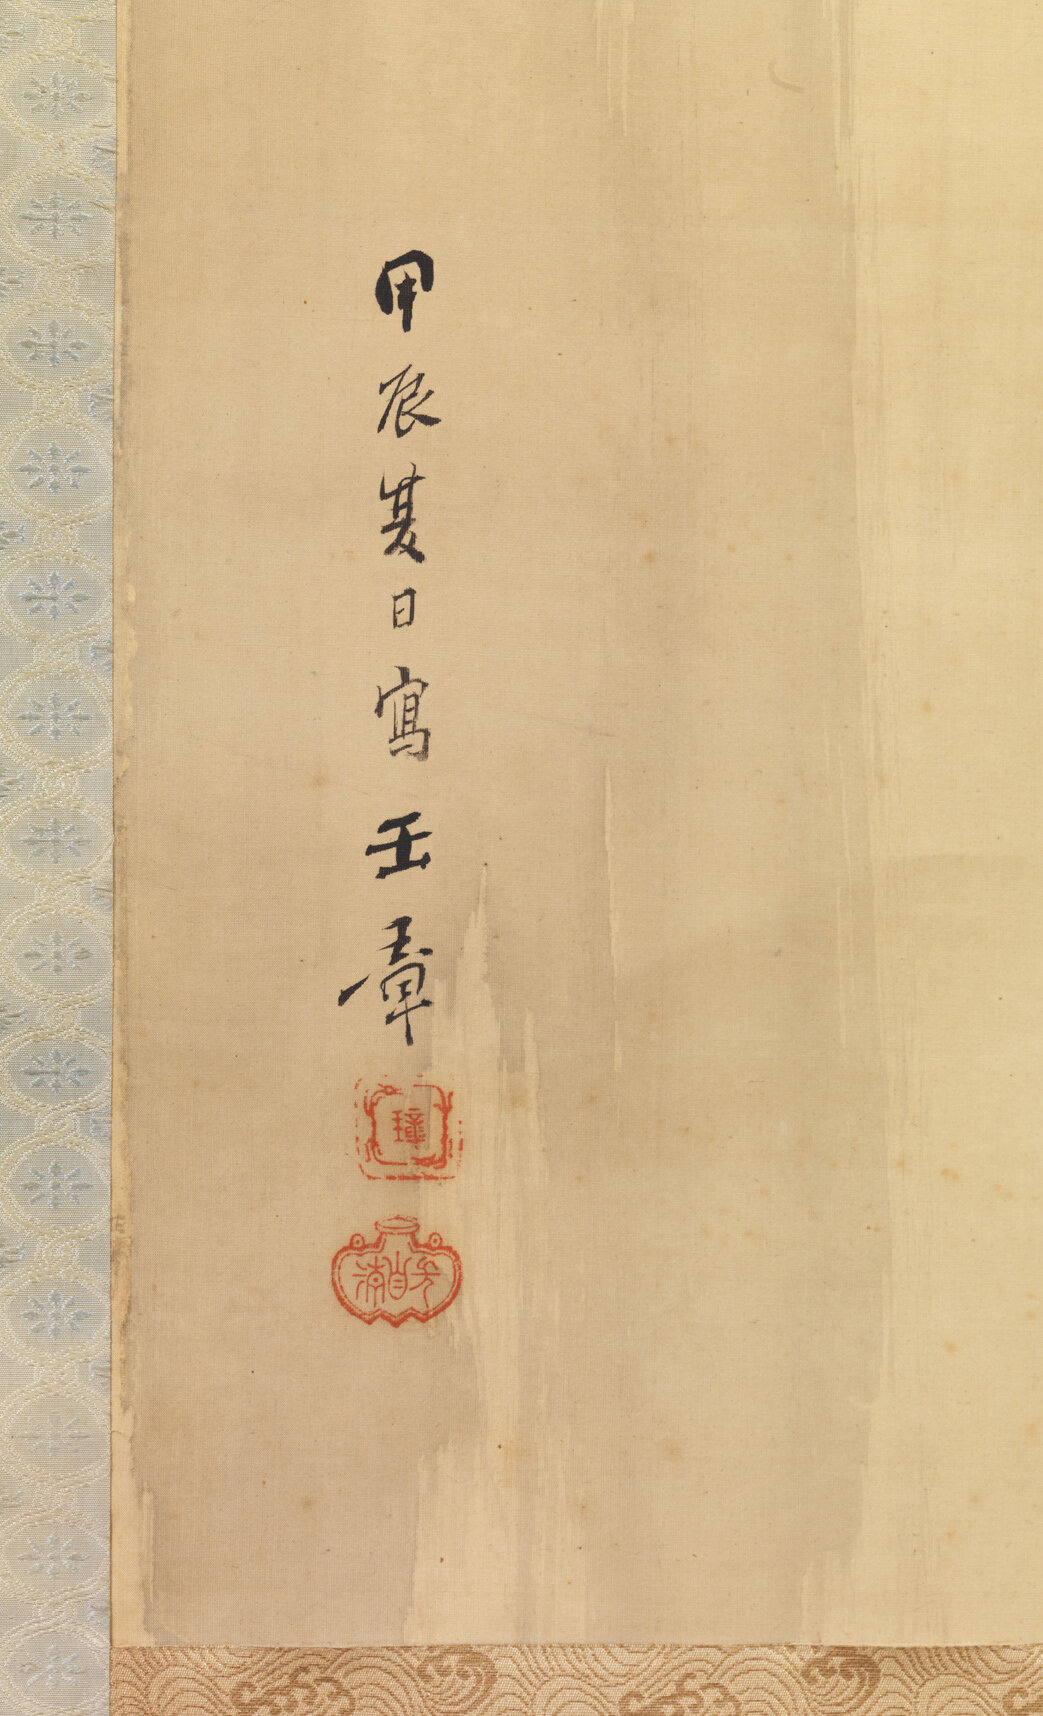 甲辰夏日寫玉章
璋